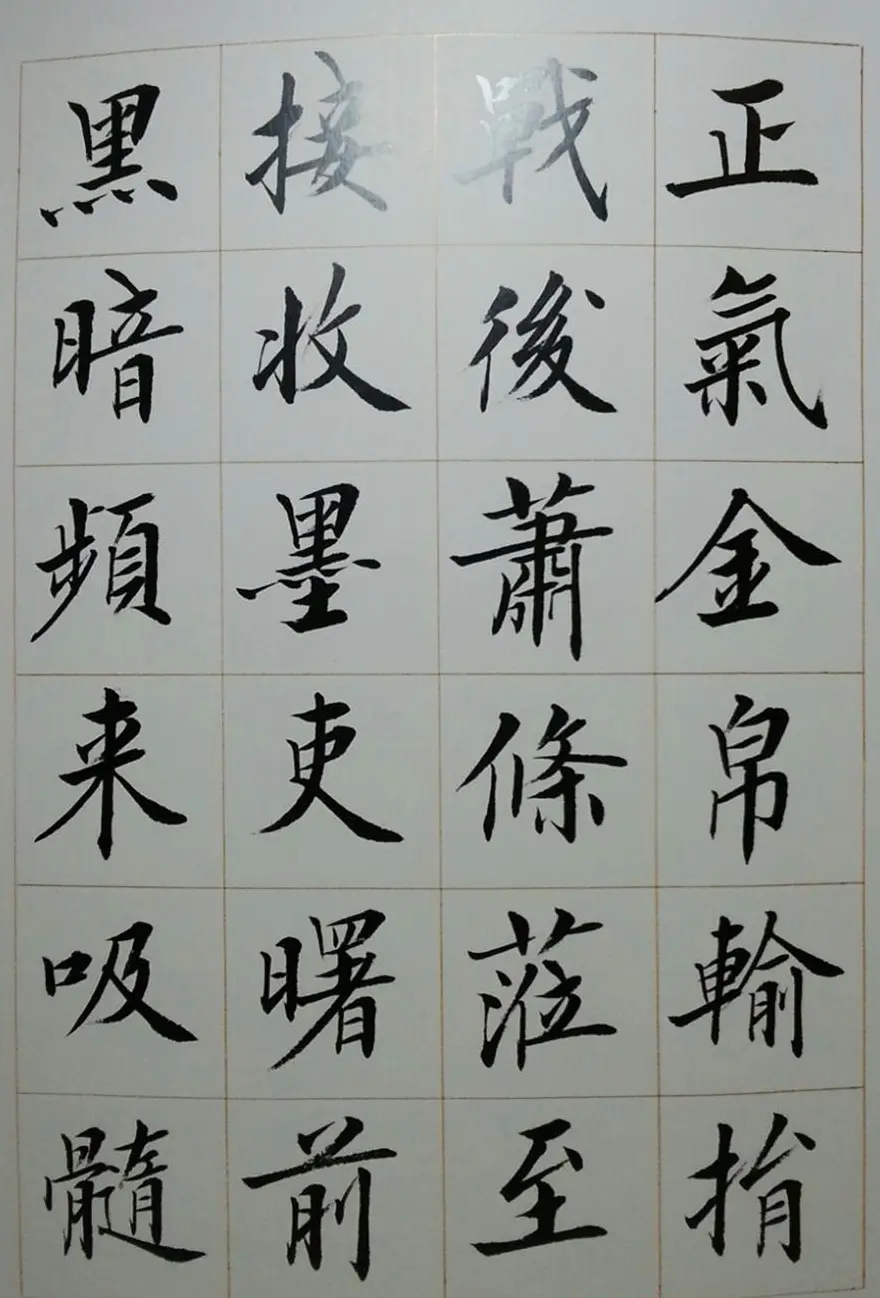 正氣金帛輸捐
戰後蕭條蒞至
接收墨吏曙前
黑暗頻来吸髓